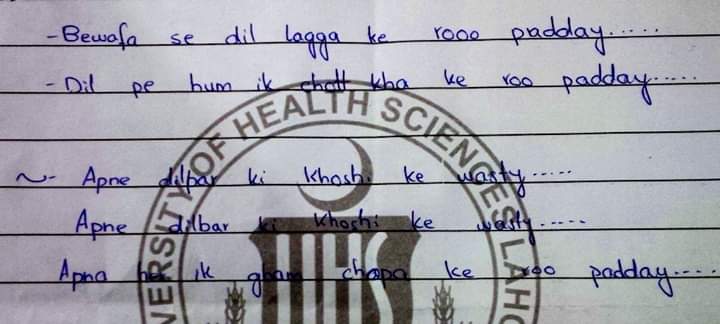 - Bewafa se dil lagga ke rooo padday.....
- Dil pe hum ik chott kha ke roo padday.....
~- Apne dilbar ki khoshi ke wasty.....
Apne dilbar ki khoshi ke wasty.....
Apna her ik gham chapa ke roo padday....
UNIVERSITY OF HEALTH SCIENCES LAHO
UHS